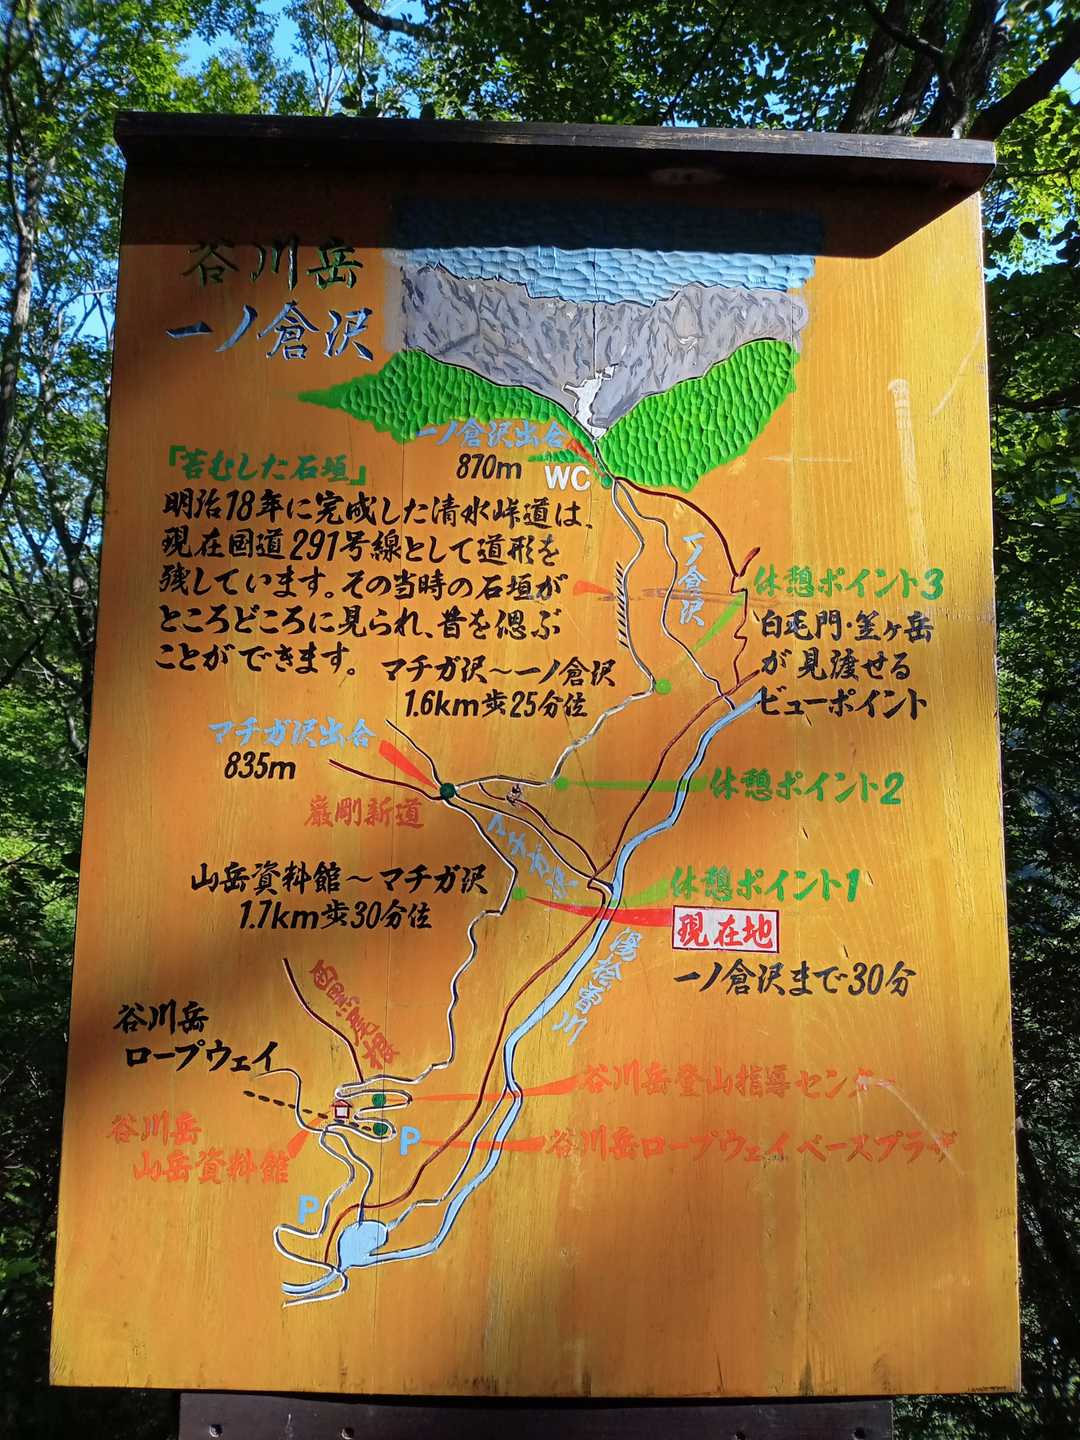 谷川岳
一ノ倉沢
一ノ倉沢出合
870m
WC
「苔むした石垣」
明治18年に完成した清水峠道は、
現在国道291号線として道形を
残しています。その当時の石垣が
ところどころに見られ、昔を偲ぶ
ことができます。
一ノ倉沢
休憩ポイント3
白毛門・笠ヶ岳
が見渡せる
ビューポイント
マチガ沢〜一ノ倉沢
1.6km歩25分位
マチガ沢出合
835m
巌剛新道
休憩ポイント2
マチガ沢
山岳資料館〜マチガ沢
1.7km歩30分位
休憩ポイント1
現在地
一ノ倉沢まで30分
湯桧曽川
西黒尾根
谷川岳
ロープウェイ
谷川岳登山指導センター
谷川岳
山岳資料館
P
谷川岳ロープウェイベースプラザ
P